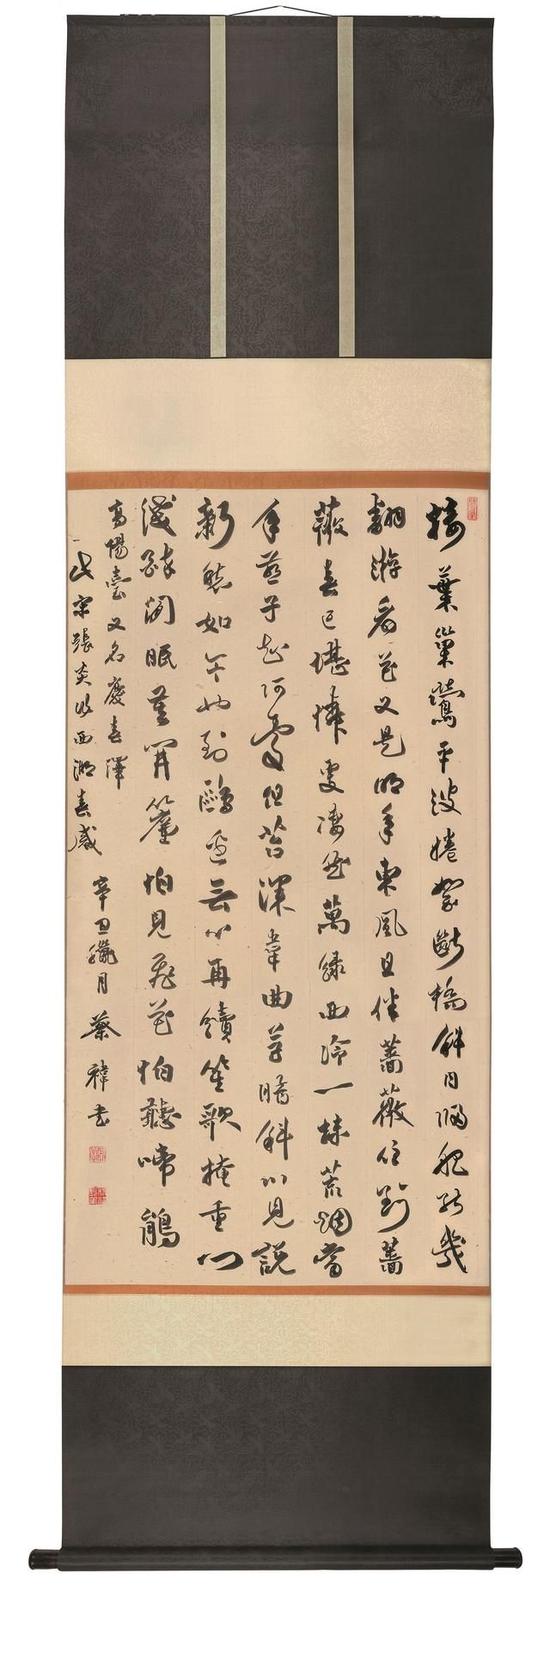 接葉巢鶯平波捲絮斷橋斜日歸船能幾
翻游看花又是明年東風且伴薔薇住到薔
薇春已堪憐更凄然萬綠西泠一抹荒烟當
年燕子知何處但苔深韋曲草暗斜川見說
新愁如今也到鷗邊無心再續笙歌掩重門
淺醉閒眠莫開簾怕見飛花怕聽啼鵑
高陽臺又名慶春澤
此宋張炎作西湖春感
辛丑臘月
蔡禕書